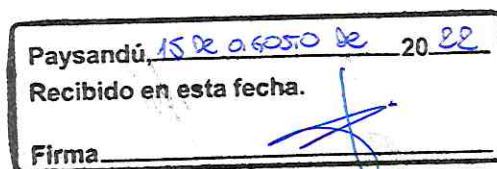 Paysandú, 15 de agosto de 2022
Recibido en esta fecha.
Firma